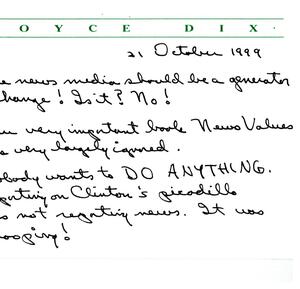 OYCE DIX
21 October 1999
e news media should be a generator
change! Is it? No!
very important book News Values
s very largely ignored.
obody wants to DO ANYTHING.
porting on Clinton's picadillo
s not reporting news. It was
ooping!